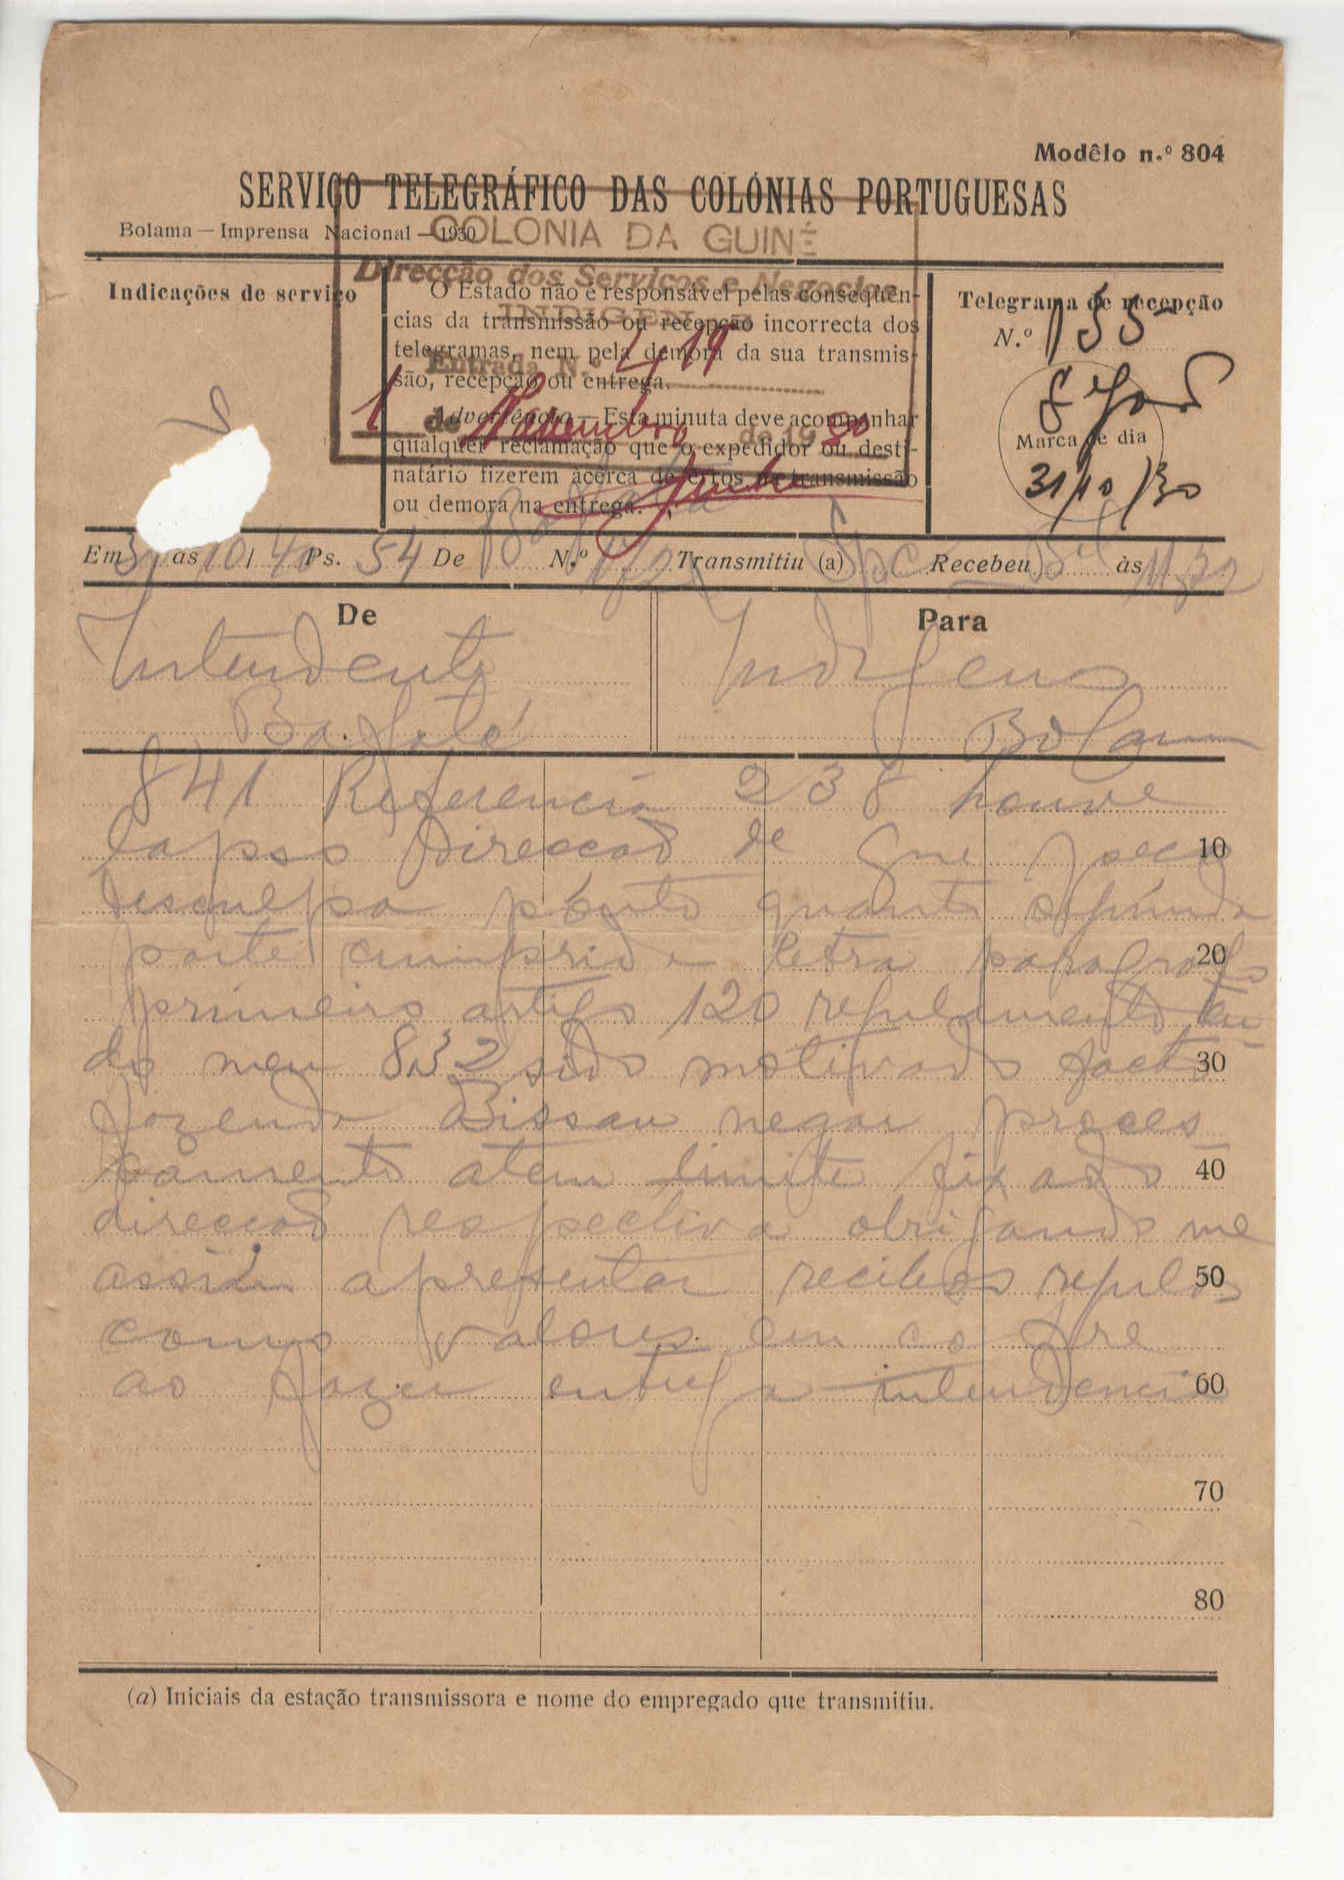 Modêlo n.º 804
SERVIÇO TELEGRÁFICO DAS COLÓNIAS PORTUGUESAS
Bolama — Imprensa Nacional — 1930
COLONIA DA GUINÉ
Direcção dos Serviços e Negocios
INDIGENAS
Entrada N.º 419
1 de Novembro de 1930
Indicações de serviço
O Estado não é responsável pelas consequên-
cias da transmissão ou recepção incorrecta dos
telegramas, nem pela demora da sua transmis-
são, recepção ou entrega.
Advertência — Esta minuta deve acompanhar
qualquer reclamação que o expedidor ou desti-
natário fizerem àcêrca de erros na transmissão
ou demora na entrega.
Telegrama de recepção
N.º 155
Marca de dia
31/10/30
Em 31 às 10/40 Ps. 54 De Bafata N.º Transmitiu (a) Recebeu às
De
Intendente
Bafatá
Para
Indigenas
Bolama
841 Referencia 238 houve
lapso direccao de que peco
desculpa ponto quanto segunda
parte cumprida letra paragrafo
primeiro artigo 120 regulamento ten
do meu 832 sido motivado facto
fazenda Bissau negar proces
samento alem limite fixado
direccao respectiva obrigando me
assim apresentar recibos
como valores em cofre
ao fazer entrega intendencia
10
20
30
40
50
60
70
80
(a) Iniciais da estação transmissora e nome do empregado que transmitiu.